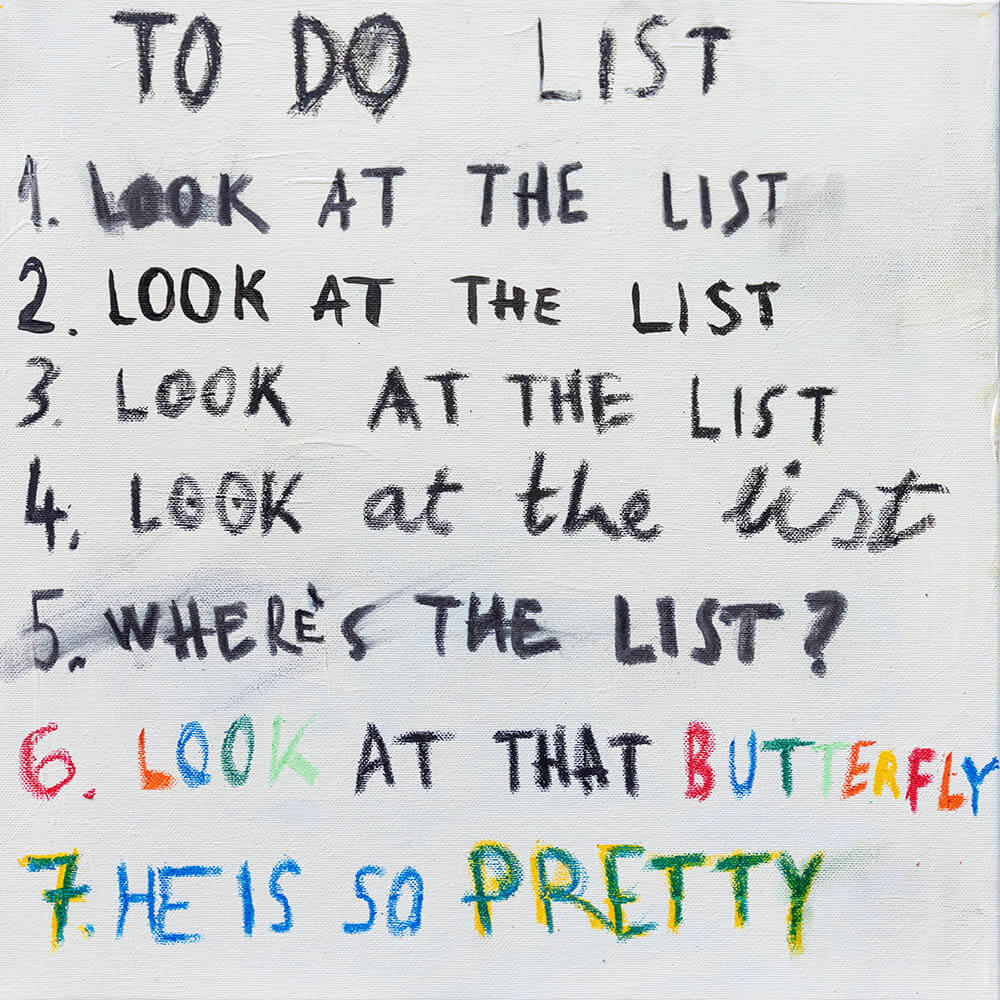 TO DO LIST
1. LOOK AT THE LIST
2. LOOK AT THE LIST
3. LOOK AT THE LIST
4. LOOK at the list
5. WHERE'S THE LIST?
6. LOOK AT THAT BUTTERFLY
7. HE IS SO PRETTY